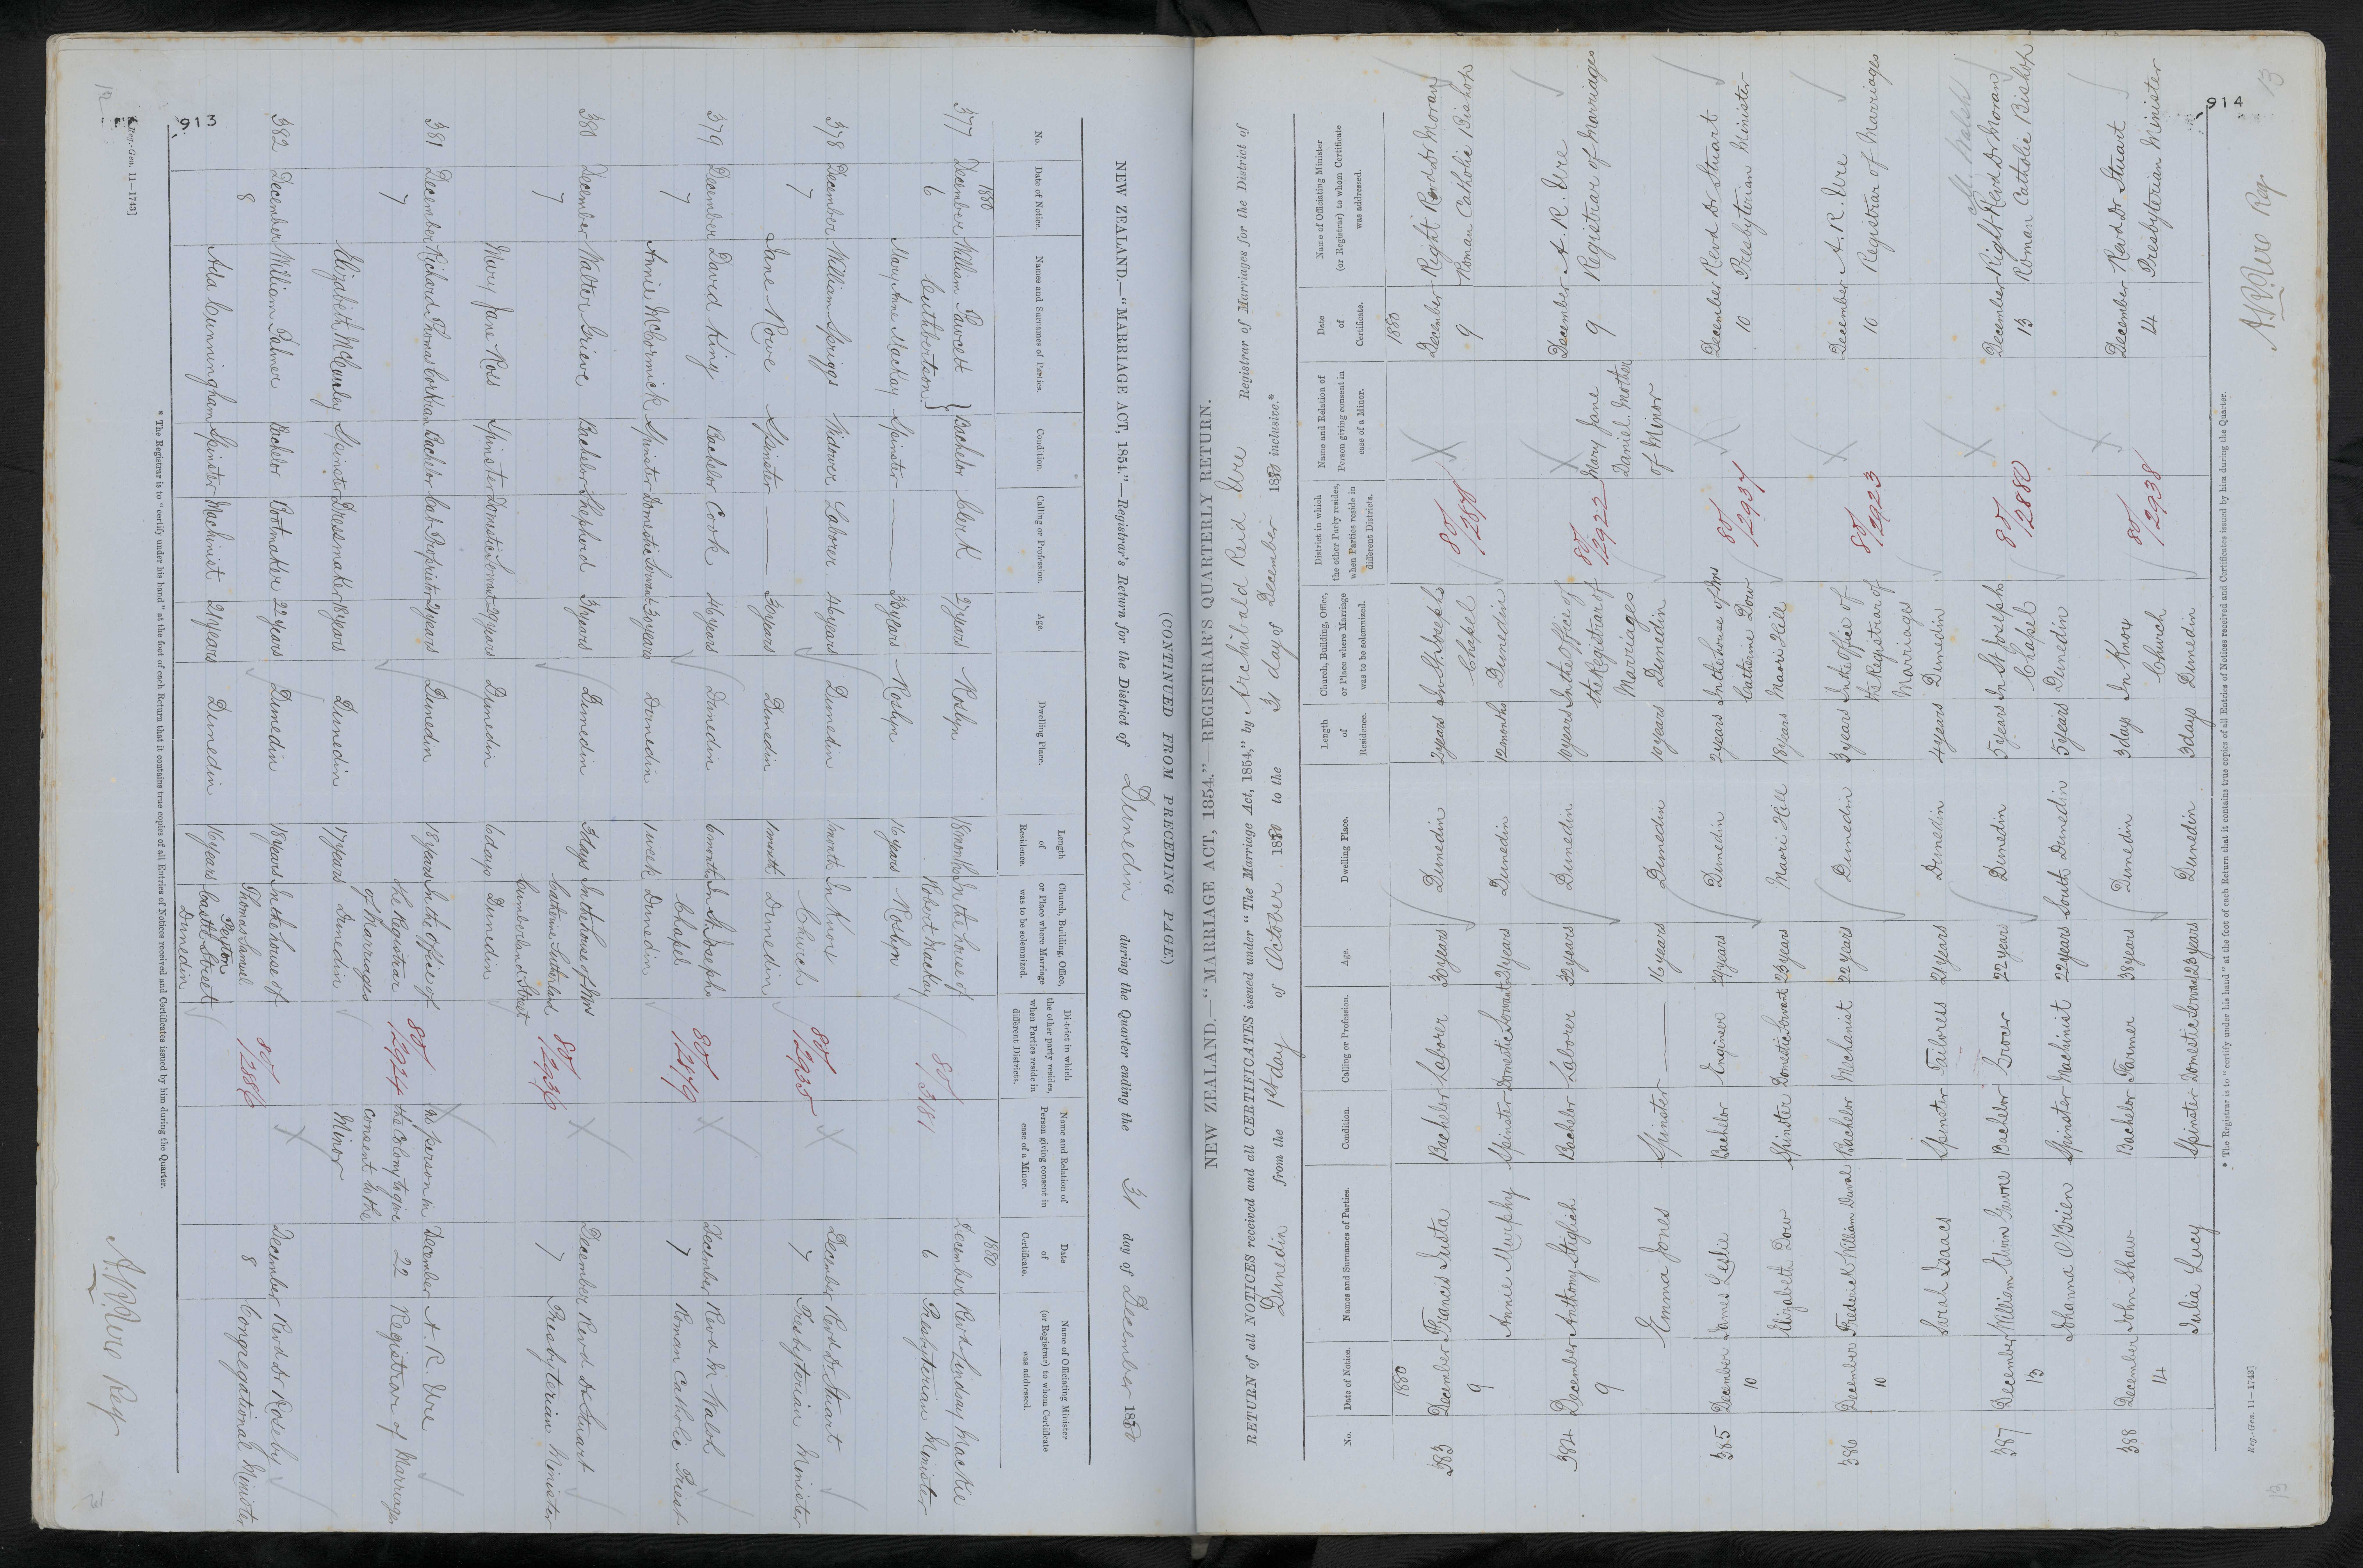 913
12
(CONTINUED FROM PRECEDING PAGE)
NEW ZEALAND.—"MARRIAGE ACT, 1854."—Registrar's Return for the District of Dunedin during the Quarter ending the 31 day of December 1880
No. Date of Notice. Names and Surnames of Parties. Condition. Calling or Profession. Age. Dwelling Place. Length of Residence. Church, Building, Office, or Place where Marriage was to be solemnized. District in which the other party resides, when Parties reside in different Districts. Name and Relation of Person giving consent in case of a Minor. Date of Certificate. Name of Officiating Minister (or Registrar) to whom Certificate was addressed.
1880 1880
377 December William Fawcett } Bachelor Clerk 27 years Roslyn 18 months In the house of 80/3181 December Revd Lindsay Mackie
6 Cuthbertson Robert Mackay 6 Presbyterian Minister
Mary Anne Mackay Spinster — 33 years Roslyn 16 years Roslyn
378 December William Spriggs Widower Laborer 46 years Dunedin 1 month In Knox 80/2935 X December Revd Dr Stuart
7 Church 7 Presbyterian Minister
Jane Rowe Spinster — 30 years Dunedin 1 month Dunedin
379 December David King Bachelor Cook 46 years Dunedin 6 months In St Josephs 80/2879 X December Revd Wm Walsh
7 Chapel 7 Roman Catholic Priest
Annie McCormick Spinster Domestic Servant 30 years Dunedin 1 week Dunedin
380 December Walter Grieve Bachelor Shepherd 31 years Dunedin 3 days In the house of Mrs 80/2936 X December Revd Dr Stuart
7 Catherine Sutherland 7 Presbyterian Minister
Cumberland Street
Mary Jane Ross Spinster Domestic Servant 29 years Dunedin 6 days Dunedin
381 December Richard Thomas Corkran Bachelor Cab Proprietor 21 years Dunedin 18 years In the Office of 80/2924 No person in December A. R. Ure
7 the Registrar the Colony to give 22 Registrar of Marriages
of Marriages consent to the
Elizabeth Spinster Dressmaker 18 years Dunedin 17 years Dunedin Minor
382 December William Palmer Bachelor Bootmaker 22 years Dunedin 18 years In the house of 80/2886 X December Revd Dr Roseby
8 Thomas Samuel 8 Congregational Minister
Ada Cunningham Spinster Machinist 21 years Dunedin 16 years Castle Street
Dunedin
* The Registrar is to "certify under his hand" at the foot of each Return that it contains true copies of all Entries of Notices received and Certificates issued by him during the Quarter.
Reg.-Gen. 11—1743]
A. R. Ure Reg
914
13
NEW ZEALAND.—"MARRIAGE ACT, 1854."—REGISTRAR'S QUARTERLY RETURN.
RETURN of all NOTICES received and all CERTIFICATES issued under "The Marriage Act, 1854," by Archibald Reid Ure Registrar of Marriages for the District of
Dunedin from the 1st day of October 1880 to the 31 day of December 1880 inclusive.*
No. Date of Notice. Names and Surnames of Parties. Condition. Calling or Profession. Age. Dwelling Place. Length of Residence. Church, Building, Office, or Place where Marriage was to be solemnized. District in which the other Party resides, when Parties reside in different Districts. Name and Relation of Person giving consent in case of a Minor. Date of Certificate. Name of Officiating Minister (or Registrar) to whom Certificate was addressed.
1880 1880
383 December Francis Susta Bachelor Laborer 30 years Dunedin 2 years In St Josephs 80/2878 X December Right Revd Dr Moran
9 Chapel 9 Roman Catholic Bishop
Annie Murphy Spinster Domestic Servant 21 years Dunedin 12 months Dunedin
384 December Anthony Stiglich Bachelor Laborer 32 years Dunedin 10 years In the Office of 80/2922 X December A. R. Ure
9 the Registrar of Mary Jane 9 Registrar of Marriages
Marriages Daniel Mother
Emma Jones Spinster — 16 years Dunedin 10 years Dunedin of Minor
385 December James Leslie Bachelor Engineer 29 years Dunedin 2 years In the house of Mrs 80/2937 X December Revd Dr Stuart
10 Catherine Dow 10 Presbyterian Minister
Elizabeth Dow Spinster Domestic Servant 23 years Maori Hill 18 years Maori Hill
386 December Frederick William Duval Bachelor Mechanist 22 years Dunedin 3 years In the Office of 80/2923 X December A. R. Ure
10 the Registrar of 10 Registrar of Marriages
Marriages
Sarah Isaacs Spinster Tailoress 21 years Dunedin 4 years Dunedin
W. Walsh
387 December William Bachelor Grocer 22 years Dunedin 5 years In St Josephs 80/2880 X December Right Revd Dr Moran
13 Chapel 13 Roman Catholic Bishop
Johanna O'Brien Spinster Machinist 22 years South Dunedin 5 years Dunedin
388 December John Shaw Bachelor Farmer 38 years Dunedin 3 days In Knox 80/2938 X December Revd Dr Stuart
14 Church 14 Presbyterian Minister
Julia Lucy Spinster Domestic Servant 23 years Dunedin 3 days Dunedin
* The Registrar is to "certify under his hand" at the foot of each Return that it contains true copies of all Entries of Notices received and Certificates issued by him during the Quarter.
Reg.-Gen. 11—1743]
A. R. Ure Reg.
13